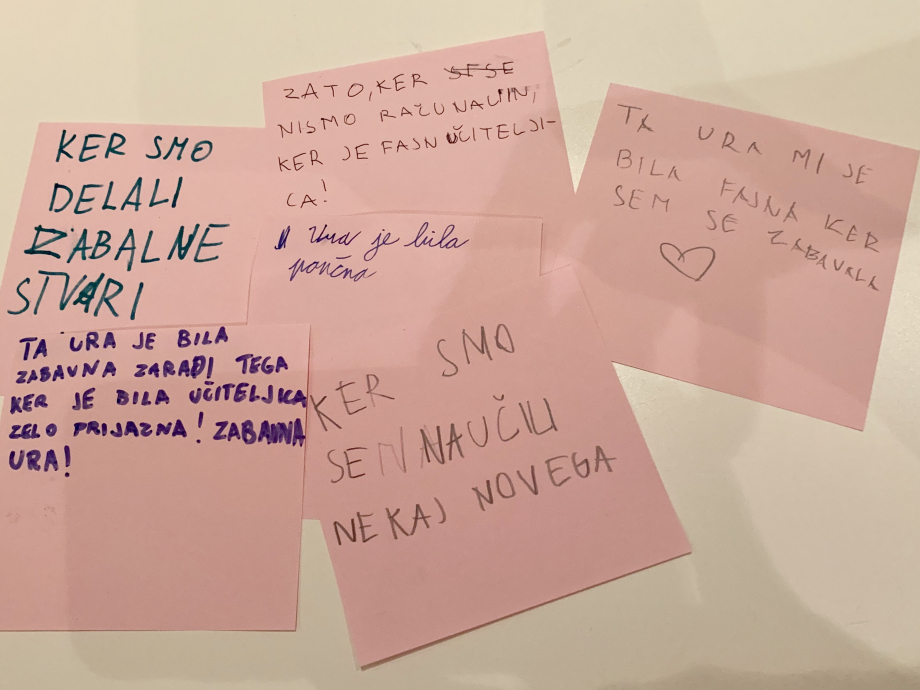 KER SMO
DELALI
ZABALNE
STVARI
ZATO, KER SFSE
NISMO RAČUNALI IN,
KER JE FAJN UČITELJI-
CA!
TA URA MI JE
BILA FAJNA KER
SEM SE ZABAVALA
Ura je bila
poučna
TA URA JE BILA
ZABAVNA ZARADI TEGA
KER JE BILA UČITELJICA
ZELO PRIJAZNA! ZABAVNA
URA!
KER SMO
SE NAUČILI
NEKAJ NOVEGA